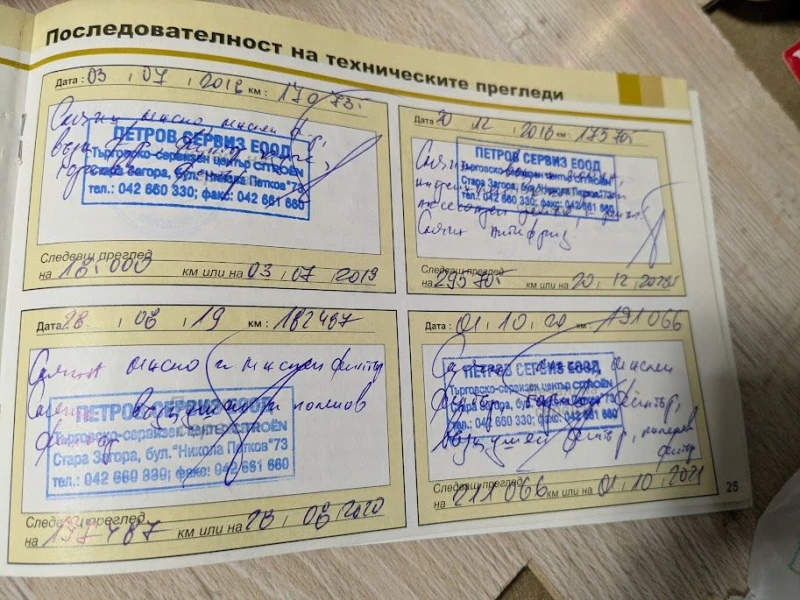 Последователност на техническите прегледи
Дата : 03 , 07 , 2018 км :
Смяна масло маслен
ПЕТРОВ СЕРВИЗ ЕООД
Търговско-сервизен център CITROËN
Стара Загора, бул. "Никола Петков"73
тел.: 042 660 330; факс: 042 661 660
Следващ преглед
на 18.000 км или на 03 , 07 , 2019
Дата 20 12 , 2018 км: 175 705
ПЕТРОВ СЕРВИЗ ЕООД
Търговско-сервизен център CITROËN
Стара Загора, бул. "Никола Петков"73
тел.: 042 660 330; факс: 042 661 660
Смяна антифриз
Следващ преглед
на км или на 20 , 12 ,
Дата 28 , 08 , 19 км : 182487
Смяна масло и маслен филтър
Смяна въздушен и поленов
филтър
ПЕТРОВ СЕРВИЗ ЕООД
Търговско-сервизен център CITROËN
Стара Загора, бул. "Никола Петков"73
тел.: 042 660 330; факс: 042 661 660
Следващ преглед
на 197487 км или на 28 , 08 , 2020
Дата: 01 , 10 , 20 км : 191066
Смяна маслен
ПЕТРОВ СЕРВИЗ ЕООД
Търговско-сервизен център CITROËN
Стара Загора, бул. "Никола Петков"73
тел.: 042 660 330; факс: 042 661 660
филтър, филтър,
въздушен филтър, поленов
филтър
Следващ преглед
на 211066 км или на 01 , 10 , 2021
25